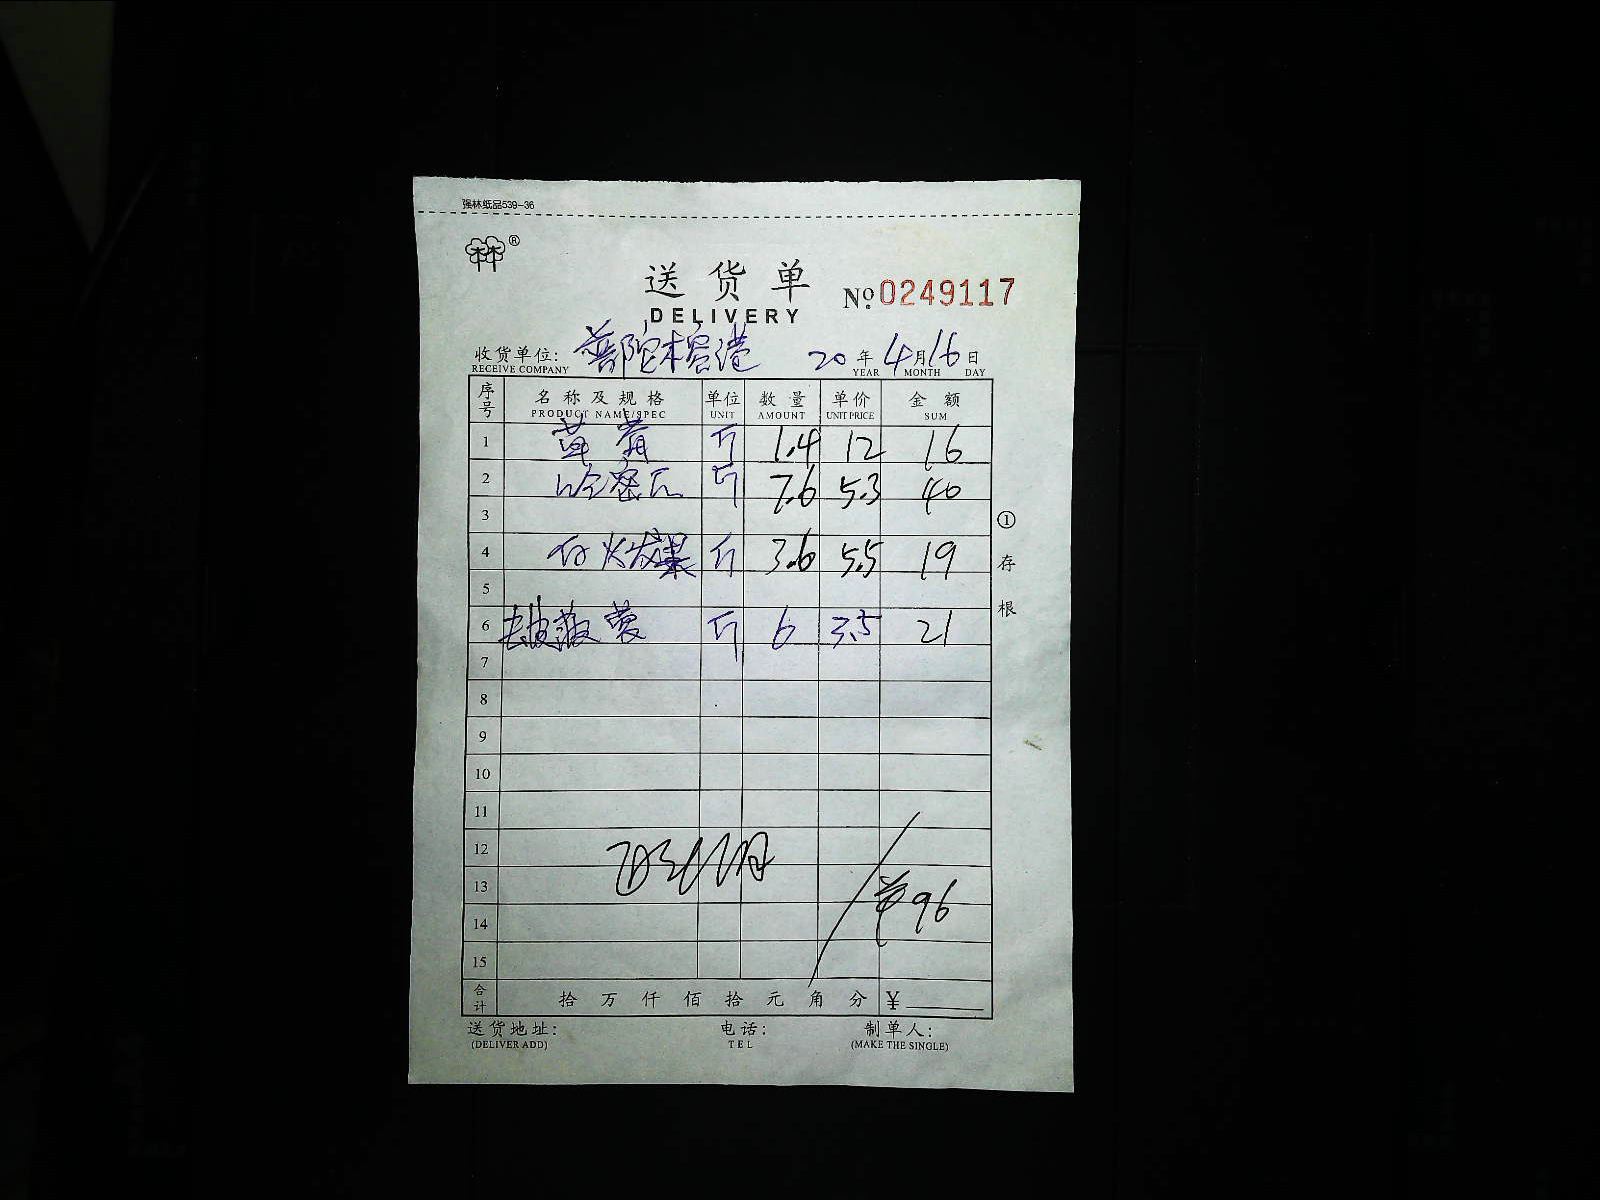 强林纸品539-36
林®
送货单 №0249117
DELIVERY
收货单位: 普陀木容港 20年4月16日
RECEIVE COMPANY YEAR MONTH DAY
序号 名称及规格 单位 数量 单价 金额
PRODUCT NAME/SPEC UNIT AMOUNT UNIT PRICE SUM
1 草莓 斤 1.4 12 16
2 哈密瓜 斤 7.6 5.3 40
3
4 白火龙果 斤 3.6 5.5 19
5
6 菠萝 斤 6 3.5 21
7
8
9
10
11
12
13 96
14
15
合计 拾万仟佰拾元角分 ¥
送货地址: 电话: 制单人:
(DELIVER ADD) TEL (MAKE THE SINGLE)
①存根